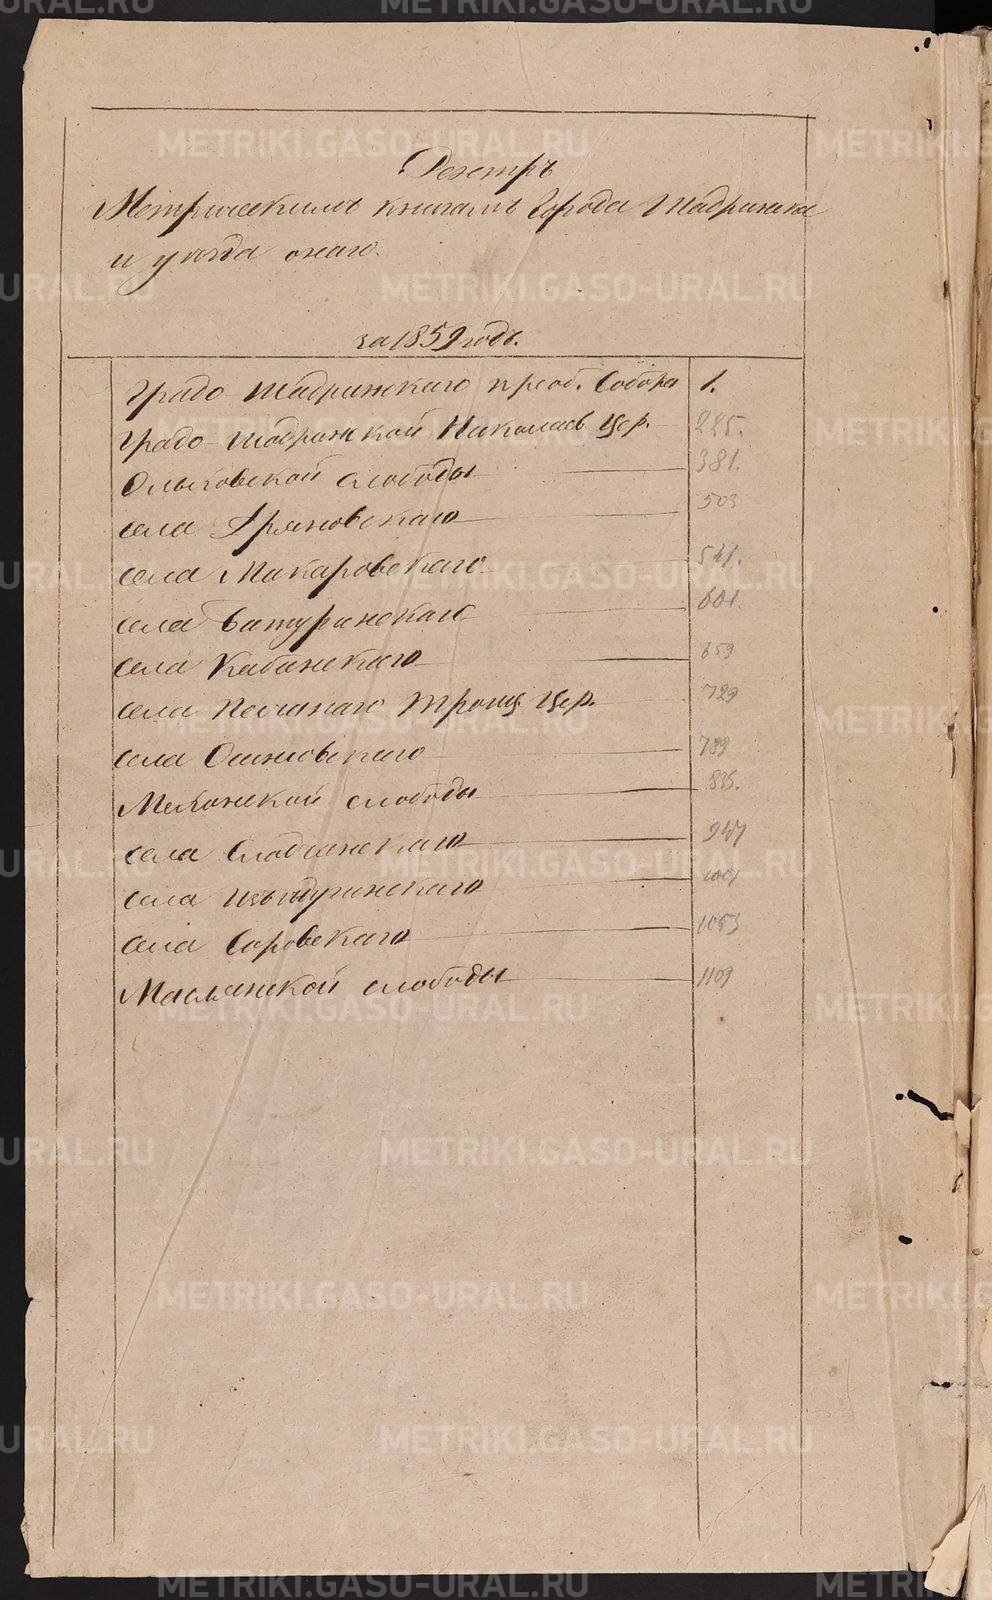 Реэстръ
Метрическимъ книгамъ Города Шадринска
и уѣзда онаго.
за 1859 годъ.
Градо Шадринскаго преоб. Собора 1.
Градо Шадринской Николаев. Цер. 245.
Ольховской слободы 381.
села Яриновскаго 503
села Макаровскаго 541.
села Батуринскаго 601.
села Кабанскаго 659
села Песчанаго Троиц. Цер. 729
села Осиновскаго 789
Мехонской слободы 835.
села Сладчинскаго 947
села Изъѣдугинскаго 1001
села Соровскаго 1053
Маслянской слободы 1109
METRIKI.GASO-URAL.RU